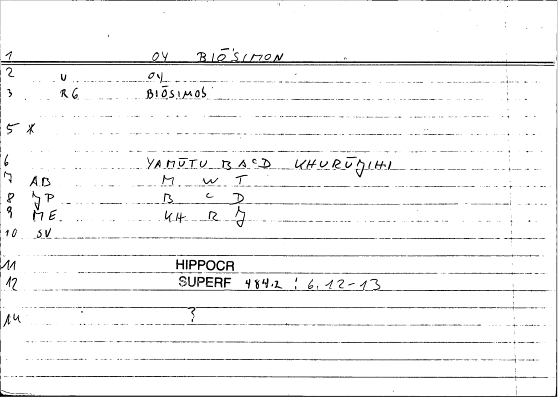 1 OY BIŌSIMON
2 U OY
3 RG BIŌSIMOS
5 *
6 YAMŪTU BAᶜD KHURŪJIHI
7 AB M W T
8 JP B ᶜ D
9 ME KH R J
10 SV
11 HIPPOCR
12 SUPERF 484.2 : 6.12-13
14 ?